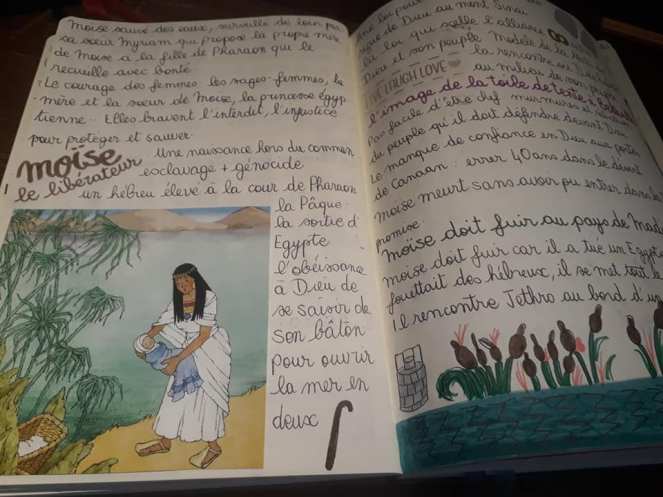 Moïse sauvé des eaux, surveillé de loin par
sa sœur Myriam qui propose la propre mère
de Moïse à la fille de Pharaon qui le
recueille avec bonté
Le courage des femmes les sages-femmes, la
mère et la sœur de Moïse, la princesse égyp
tienne.. Elles bravent l'interdit, l'injustice
pour protéger et sauver
moïse
le libérateur
Une naissance hors du commun
esclavage + génocide
un hébreu élevé à la cour de Pharaon
la Pâque
la sortie d'
Egypte
l'obéissance
à Dieu de
se saisir de
son bâton
pour ouvrir
la mer en
deux
de Dieu au mont Sinaï
la loi qui scelle l'alliance
Dieu et son peuple Modèle de la
la rencontre
LIVE LAUGH LOVE
au milieu de son peuple
l'image de la toile de tente à
Pas facile d'être chef murmures
du peuple qu'il doit défendre devant Dieu
le manque de confiance en Dieu aux portes
de Canaan : errer 40 ans dans le désert
Moïse meurt sans avoir pu entrer dans
promise
moïse doit fuir au pays de
Moïse doit fuir car il a tué un
fouettait des hébreux, il se met
Il rencontre Jethro au bord d'un